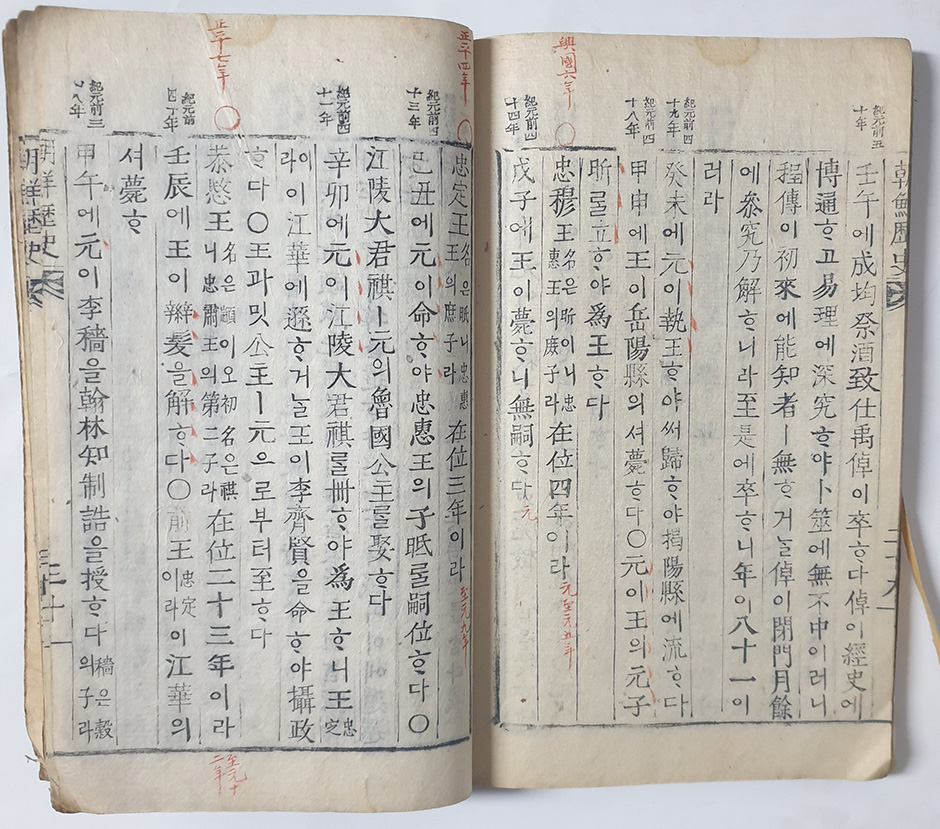 朝鮮歷史
二十九
紀元前五十年
壬午에成均祭酒致仕禹倬이卒ᄒᆞ다倬이經史에
博通ᄒᆞ고易理에深究ᄒᆞ야卜筮에無不中이러니
程傳이初來에能知者ㅣ無ᄒᆞ거ᄂᆞᆯ倬이閉門月餘
에叅究乃解ᄒᆞ니라至是에卒ᄒᆞ니年이八十一이
러라
紀元前四十九年
癸未에元이執王ᄒᆞ야써歸ᄒᆞ야揭陽縣에流ᄒᆞ다
紀元前四十八年
甲申에王이岳陽縣의셔薨ᄒᆞ다〇元이王의元子
昕ᄅᆞᆯ立ᄒᆞ야爲王ᄒᆞ다
興國六年〇
忠穆王名은昕이니忠惠王의庶子라在位四年이라元至元五年
紀元前四十四年
戊子에王이薨ᄒᆞ니無嗣ᄒᆞ다元
正平四年〇
忠定王名은眂니忠惠王의庶子라在位三年이라至元九年
紀元前四十三年
己丑에元이命ᄒᆞ야忠惠王의子眂ᄅᆞᆯ嗣位ᄒᆞ다〇
江陵大君祺ㅣ元의魯國公主ᄅᆞᆯ娶ᄒᆞ다
紀元前四十一年
辛卯에元이江陵大君祺ᄅᆞᆯ冊ᄒᆞ야爲王ᄒᆞ니王忠定
이라이江華에遜ᄒᆞ거ᄂᆞᆯ王이李齊賢을命ᄒᆞ야攝政
ᄒᆞ다〇王과밋公主ㅣ元으로부터至ᄒᆞ다
正平七年〇
恭愍王名은顓이오初名은祺니忠肅王의第二子라在位二十三年이라
至元十二年
紀元前四十年
壬辰에王이辮髮을解ᄒᆞ다〇前王忠定이라이江華의
셔薨ᄒᆞ
紀元前三十八年
甲午에元이李穡을翰林知制誥을授ᄒᆞ다穡은穀의子라
朝鮮歷史
三十